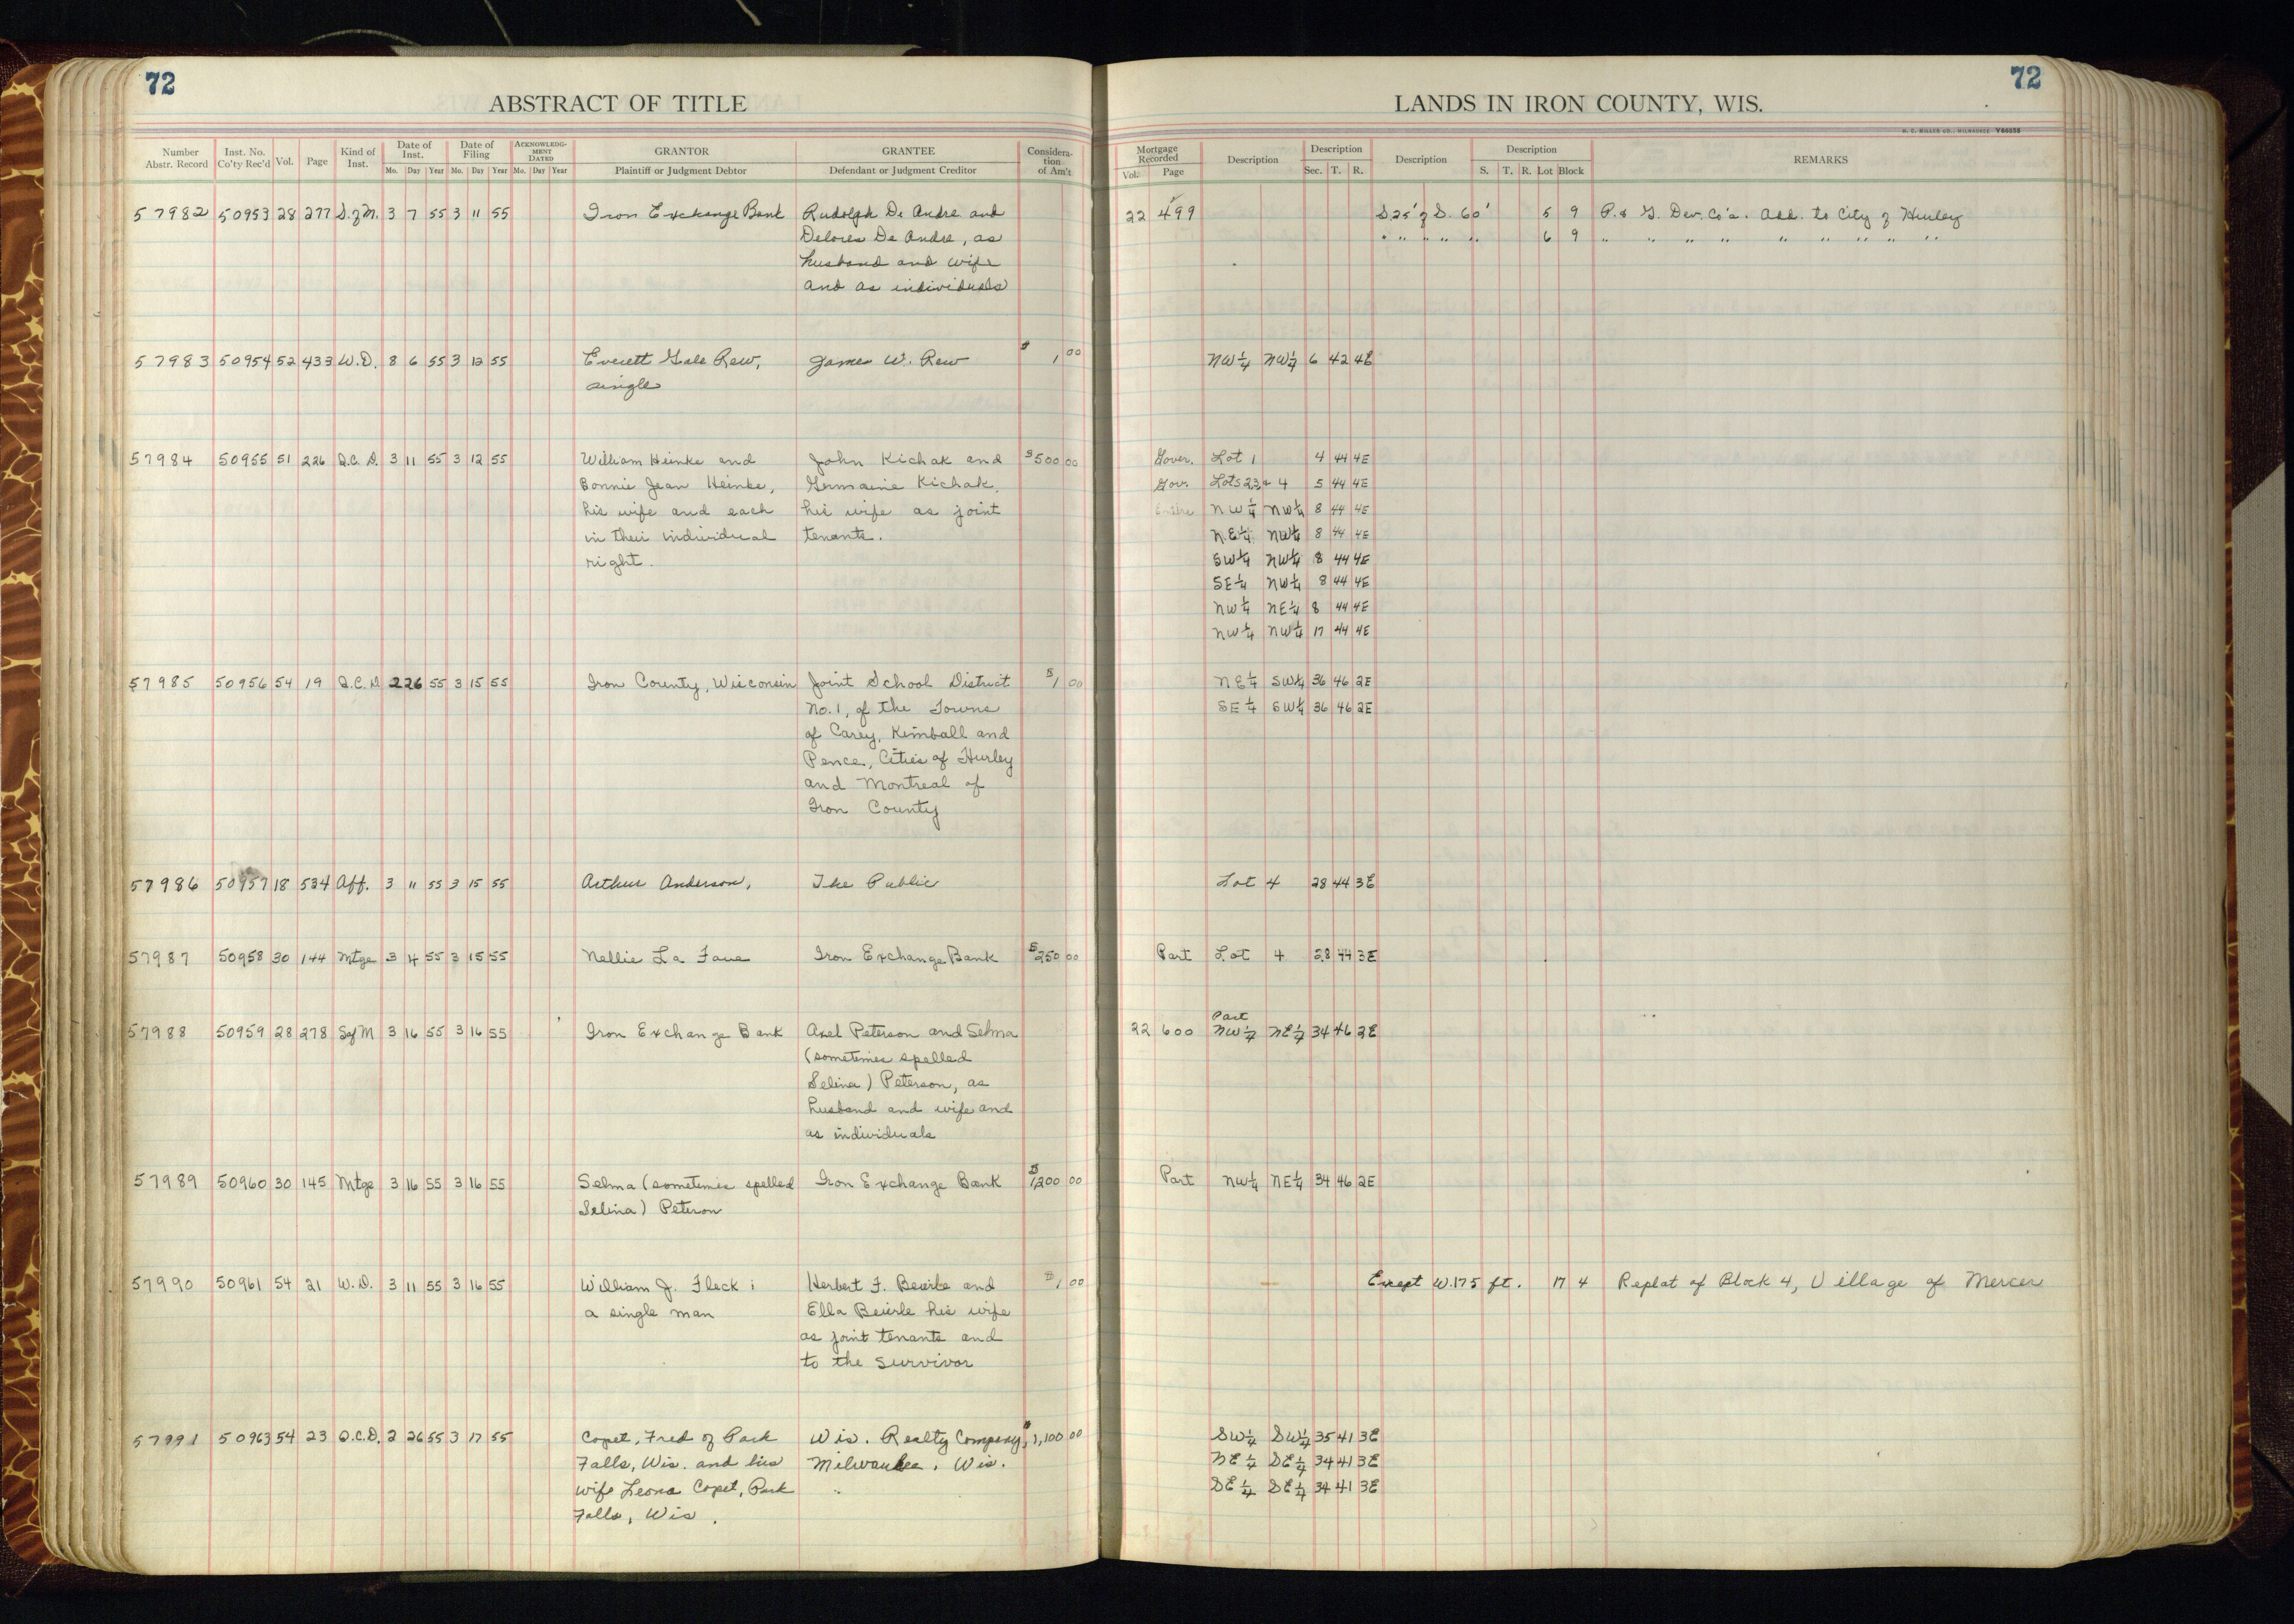 72
72
ABSTRACT OF TITLE
LANDS IN IRON COUNTY, WIS.
H. C. MILLER CO., MILWAUKEE Y66655
Number Abstr. Record | Inst. No. Co'ty Rec'd | Vol. | Page | Kind of Inst. | Date of Inst. Mo. Day Year | Date of Filing Mo. Day Year | ACKNOWLEDGMENT DATED Mo. Day Year | GRANTOR Plaintiff or Judgment Debtor | GRANTEE Defendant or Judgment Creditor | Consideration of Am't
Mortgage Recorded Vol. Page | Description | Description Sec. T. R. | Description | Description S. T. R. Lot Block | REMARKS
57982 50953 28 277 S. of M. 3 7 55 3 11 55 Iron Exchange Bank Rudolph De Andre and 22 499 S 25' of S. 60' 5 9 P. & G. Dev. Co's. Add. to City of Hurley
Delores De Andre, as " " " " " 6 9 " " " " " " " " "
husband and wife
and as individuals
57983 50954 52 433 W.D. 8 6 55 3 12 55 Everett Gale Rew, James W. Rew $ 1 00 NW 1/4 NW 1/4 6 42 4E
single
57984 50955 51 226 Q.C.D. 3 11 55 3 12 55 William Heinke and John Kichak and $500 00 Gover. Lot 1 4 44 4E
Bonnie Jean Heinke, Germaine Kichak, Gov. Lots 2,3, & 4 5 44 4E
his wife and each his wife as joint Entire NW 1/4 NW 1/4 8 44 4E
in their individual tenants. N.E 1/4 NW 1/4 8 44 4E
right. SW 1/4 NW 1/4 8 44 4E
SE 1/4 NW 1/4 8 44 4E
NW 1/4 NE 1/4 8 44 4E
NW 1/4 NW 1/4 17 44 4E
57985 50956 54 19 Q.C.D 2 26 55 3 15 55 Iron County, Wisconsin Joint School District $1 00 NE 1/4 SW 1/4 36 46 2E
No. 1, of the Towns SE 1/4 SW 1/4 36 46 2E
of Carey, Kimball and
Pence, Cities of Hurley
and Montreal of
Iron County
57986 50957 18 534 Aff. 3 11 55 3 15 55 Arthur Anderson, The Public Lot 4 28 44 3E
57987 50958 30 144 Mtge 3 14 55 3 15 55 Nellie La Fave Iron Exchange Bank $250 00 Part Lot 4 28 44 3E
57988 50959 28 278 S of M 3 16 55 3 16 55 Iron Exchange Bank Axel Peterson and Selma 22 600 Part NW 1/4 NE 1/4 34 46 2E
(sometimes spelled
Selina) Peterson, as
husband and wife and
as individuals
57989 50960 30 145 Mtge 3 16 55 3 16 55 Selma (sometimes spelled Iron Exchange Bank $1,200 00 Part NW 1/4 NE 1/4 34 46 2E
Selina) Peterson
57990 50961 54 21 W.D. 3 11 55 3 16 55 William J. Fleck; Herbert F. Beierle and $1 00 Except W. 175 ft. 17 4 Replat of Block 4, Village of Mercer
a single man Ella Beierle his wife
as joint tenants and
to the survivor
57991 50963 54 23 Q.C.D. 2 26 55 3 17 55 Copet, Fred of Park Wis. Realty Company, $1,100 00 SW 1/4 SW 1/4 35 41 3E
Falls, Wis. and his Milwaukee, Wis. NE 1/4 SE 1/4 34 41 3E
wife Leona Copet, Park SE 1/4 SE 1/4 34 41 3E
Falls, Wis.